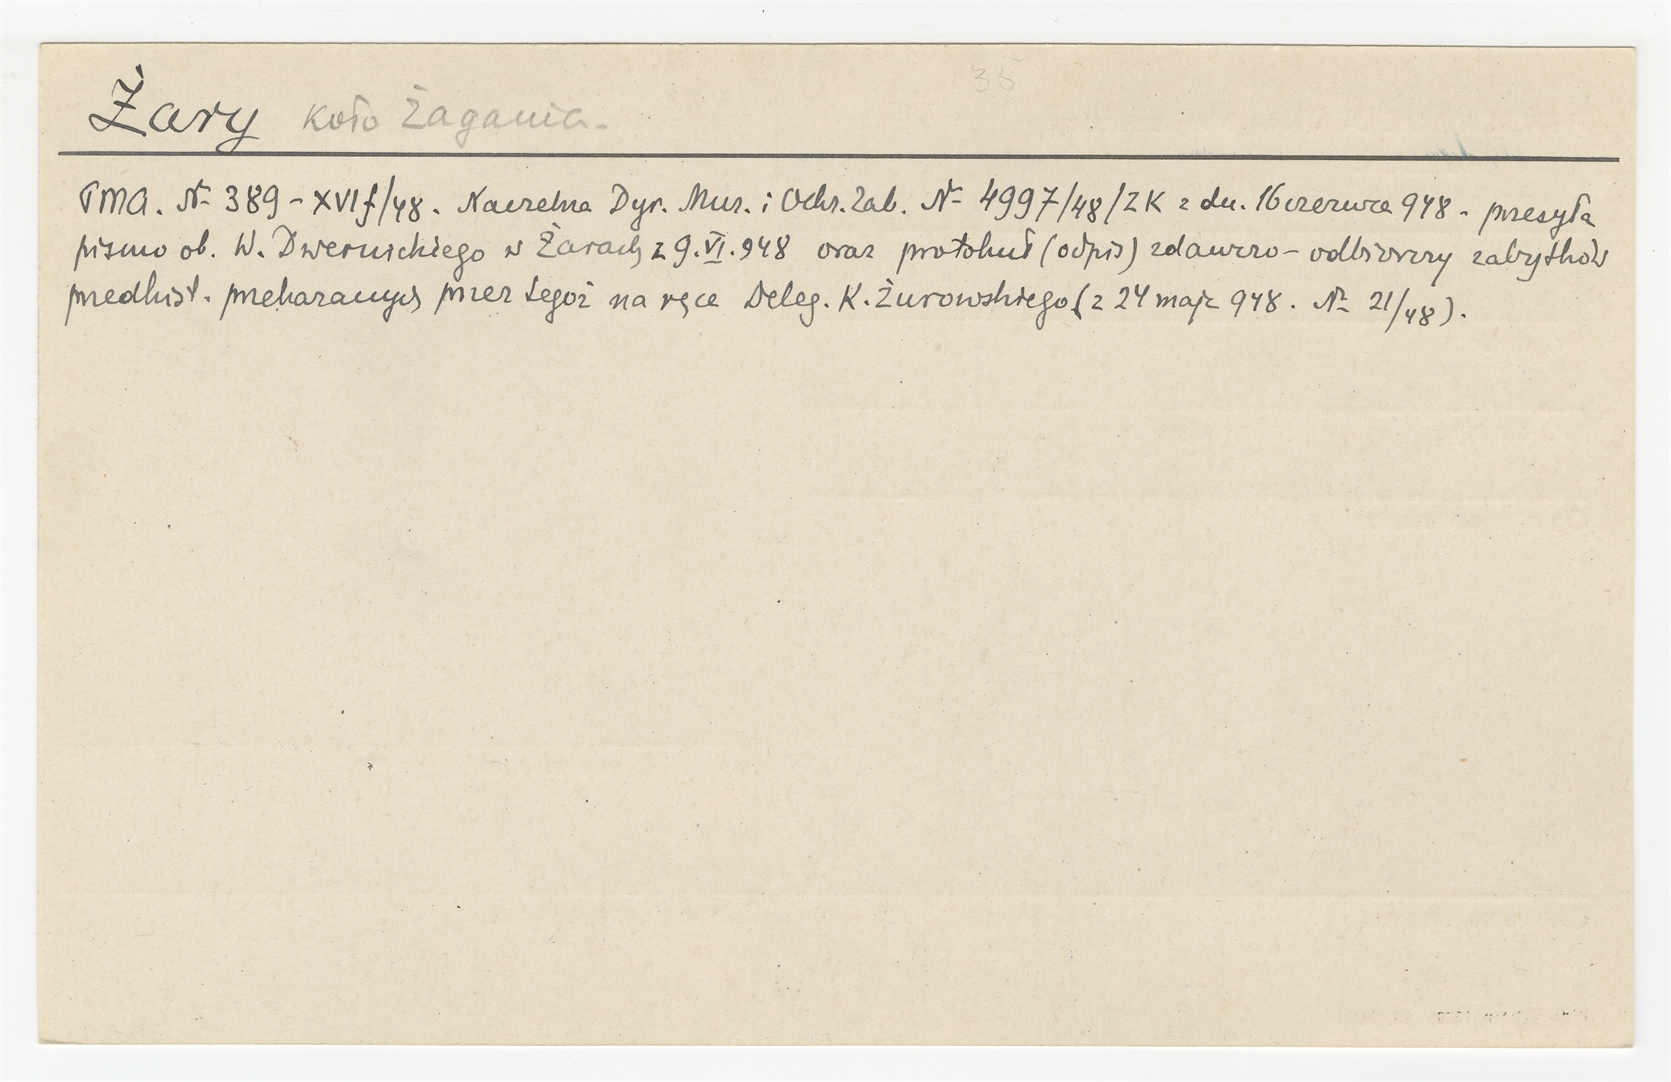 35
Żary koło Żagania.
PMA. № 389-XVIf/48. Naczelna Dyr. Muz. i Ochr. Zab. № 4997/48/ZK z dn. 16 czerwca 948. przesyła
pismo ob. W. Dwernickiego w Żarach z 9.VI.948 oraz protokuł (odpis) zdawczo-odbiorczy zabytków
przedhist. przekazanych przez tegoż na ręce Deleg. K. Żurowskiego (z 24 maja 948. № 21/48).